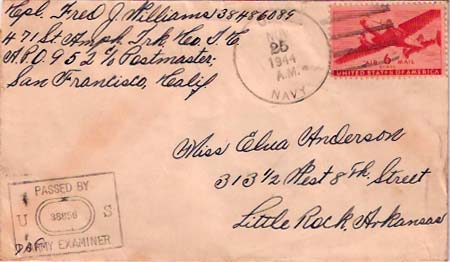 Cpl. Fred J. Williams 38486089
471 St Amph. Trk. Co. T.C.
A.P.O. 952 c/o Postmaster,
San Francisco, Calif.
25
1944
A.M.
NAVY
AIR 6¢ MAIL
UNITED STATES OF AMERICA
Miss Elva Anderson
313 1/2 West 8th. Street
Little Rock, Arkansas
PASSED BY
U 38656 S
ARMY EXAMINER